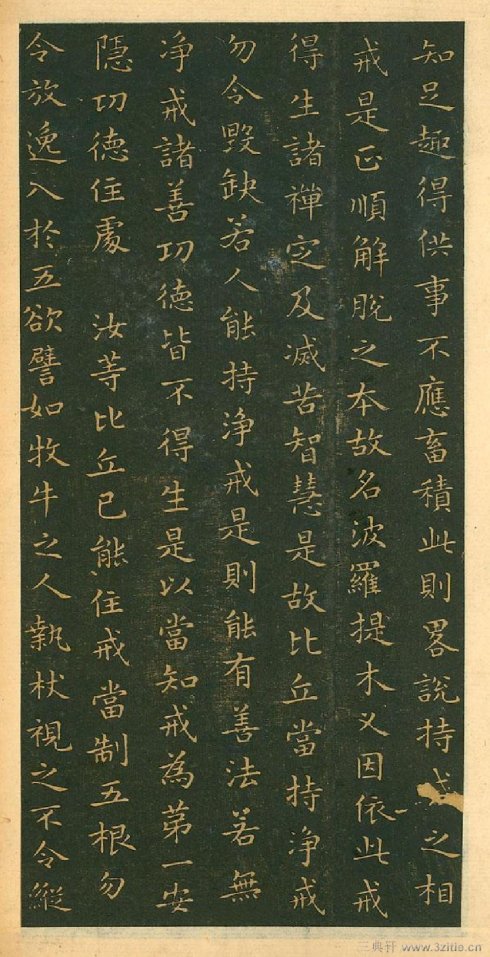 知足趣得供事不應畜積此則畧說持戒之相
戒是正順解脫之本故名波羅提木叉因依此戒
得生諸禪定及滅苦智慧是故比丘當持淨戒
勿令毀缺若人能持淨戒是則能有善法若無
淨戒諸善功德皆不得生是以當知戒為第一安
隱功德住處 汝等比丘已能住戒當制五根勿
令放逸入於五欲譬如牧牛之人執杖視之不令縱
三典轩 www.3zitie.cn